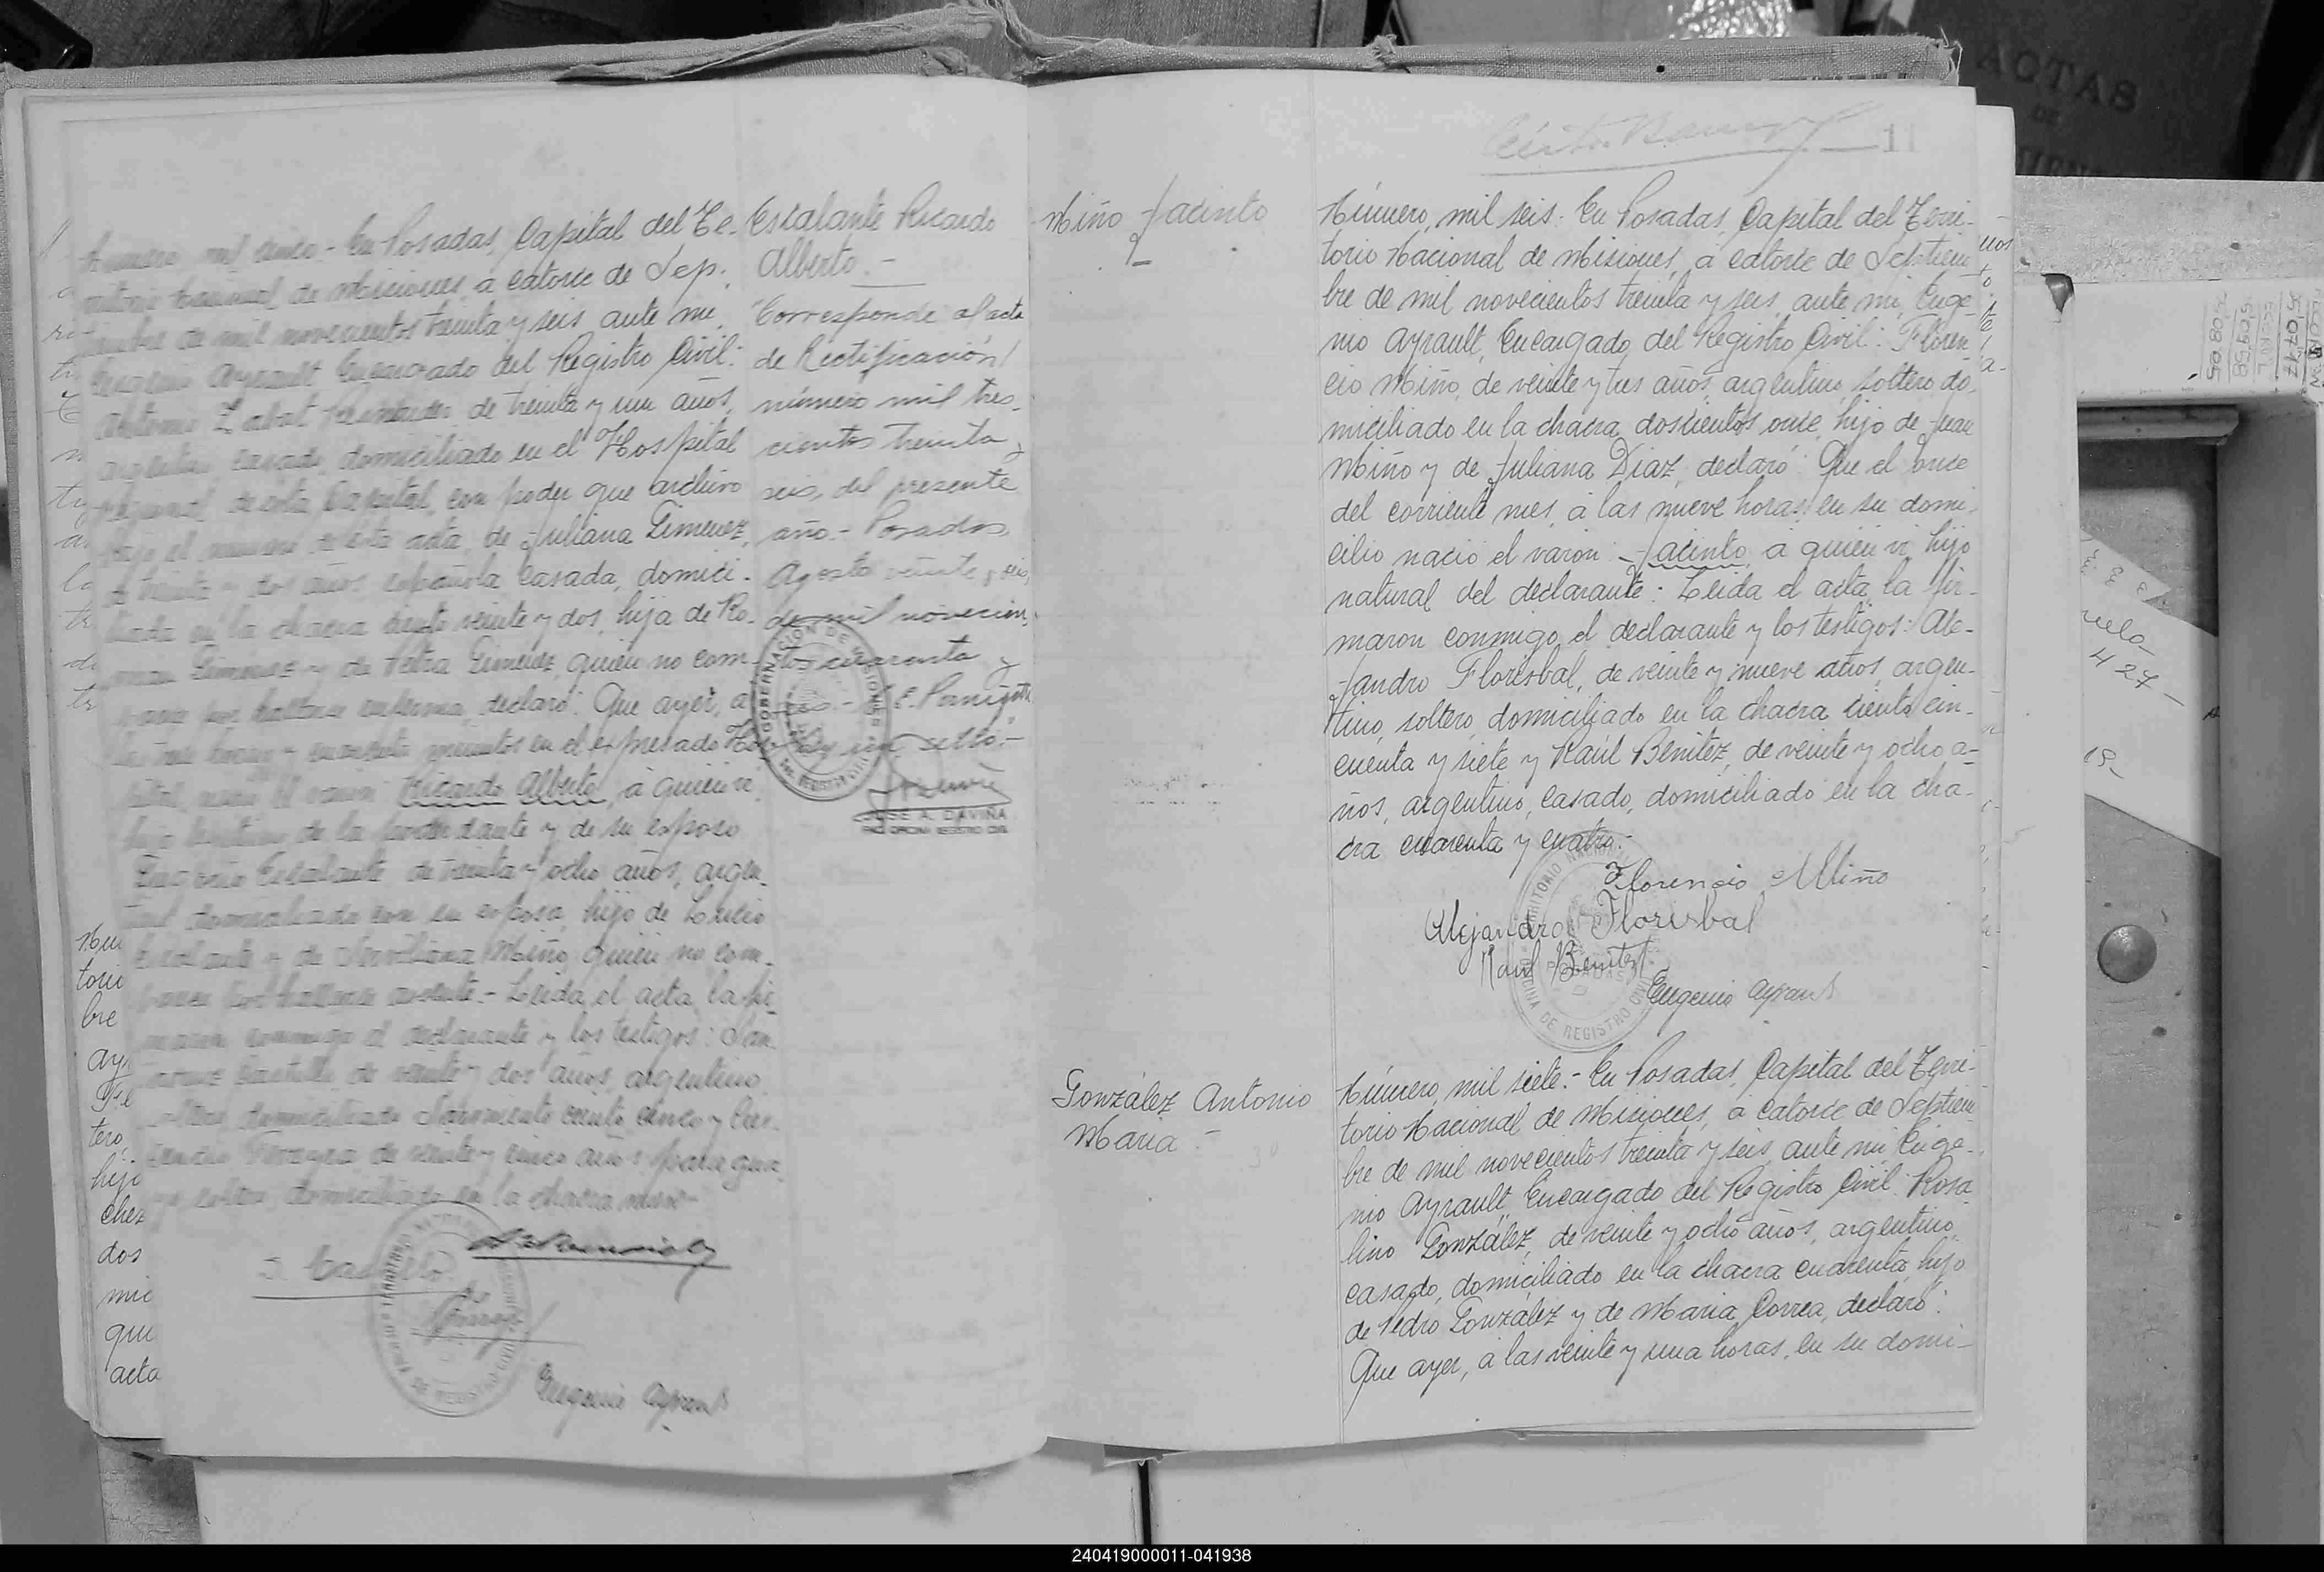 Número mil cinco.- En Posadas, Capital del Te-
rritorio Nacional de Misiones, a catorce de Sep-
tiembre de mil novecientos treinta y seis ante mi,
Eugenio Ayrault Encargado del Registro Civil:
Antonio Labat de treinta y un años,
argentino casado, domiciliado en el Hospital
Regional de esta Capital, con poder que archivo
bajo el numero de esta acta, de Juliana Gimenez,
de treinta y dos años, española, casada, domici-
liada en la chacra ciento veinte y dos, hija de Ro-
man Gimenez y de Petra Gimenez, quien no com-
parece por hallarse enferma, declaró: Que ayer, a
las horas y cuarenta minutos en el expresado Hos-
pital, nació el varon Ricardo Alberto, á quien ví,
hijo legitimo de la poderdante y de su esposo
Escalante de treinta y ocho años, argen-
domiciliado con su esposa, hijo de Lucio
Escalante y de Miño, quien no com-
parece por hallarse ausente.- Leida el acta, la fir-
maron conmigo el declarante y los testigos:
Castillo, de veinte y dos años, argentino,
soltero domiciliado Sarmiento ciento cinco y
de veinte y cinco años, paragua-
yo soltero domiciliado en la chacra
Eugenio Ayrault
Escalante Ricardo
Alberto.-
Corresponde al acta
de Rectificación
número mil tres-
cientos treinta y
seis, del presente
año.- Posadas,
Agosto veinte y seis,
de mil novecien-
tos cuarenta y
Hay un sello.-
GOBERNACION DE MISIONES
JOSE A. DAVIÑA
ENC. OFICINA REGISTRO CIVIL
Nu
torio
bre
ayr
Fe
tero,
hijo
chez
dos
mic
que
acta
11
Miño Jacinto
Número, mil seis: En Posadas, Capital del Terri-
torio Nacional de Misiones, á catorce de Septiem
bre de mil novecientos treinta y seis, ante mi, Euge-
nio Ayrault, Encargado del Registro Civil: Floren
cio Miño, de veinte y tres años, argentino, soltero, do-
miciliado en la chacra, doscientos once, hijo de Juan
Miño y de Juliana Diaz, declaró: Que el once
del corriente mes, á las nueve horas, en su domi-
cilio nació el varon: Jacinto, a quien ví, hijo
natural del declarante: Leida el acta, la fir-
maron conmigo, el declarante y los testigos: Ale-
jandro Florisbal, de veinte y nueve años, argen-
tino, soltero, domiciliado en la chacra ciento cin-
cuenta y siete y Raúl Benitez, de veinte y ocho a-
ños, argentino, casado, domiciliado en la cha-
cra cuarenta y cuatro.-
Florencio Miño
Alejandro Florisbal
Raul Benitez
Eugenio Ayrault
TERRITORIO NACIONAL
POSADAS
OFICINA DE REGISTRO CIVIL
González Antonio
Maria.-
Número, mil siete.- En Posadas, Capital del Terri-
torio Nacional de Misiones, a catorce de Septiem
bre de mil novecientos treinta y seis, ante mi Euge-
nio Ayrault, Encargado del Registro Civil: Rosa
lino González, de veinte y ocho años, argentino,
casado, domiciliado en la chacra cuarenta, hijo
de Pedro González y de Maria Correa, declaró:
Que ayer, á las veinte y una horas, en su domi-
ACTAS
DE
427
240419000011-041938